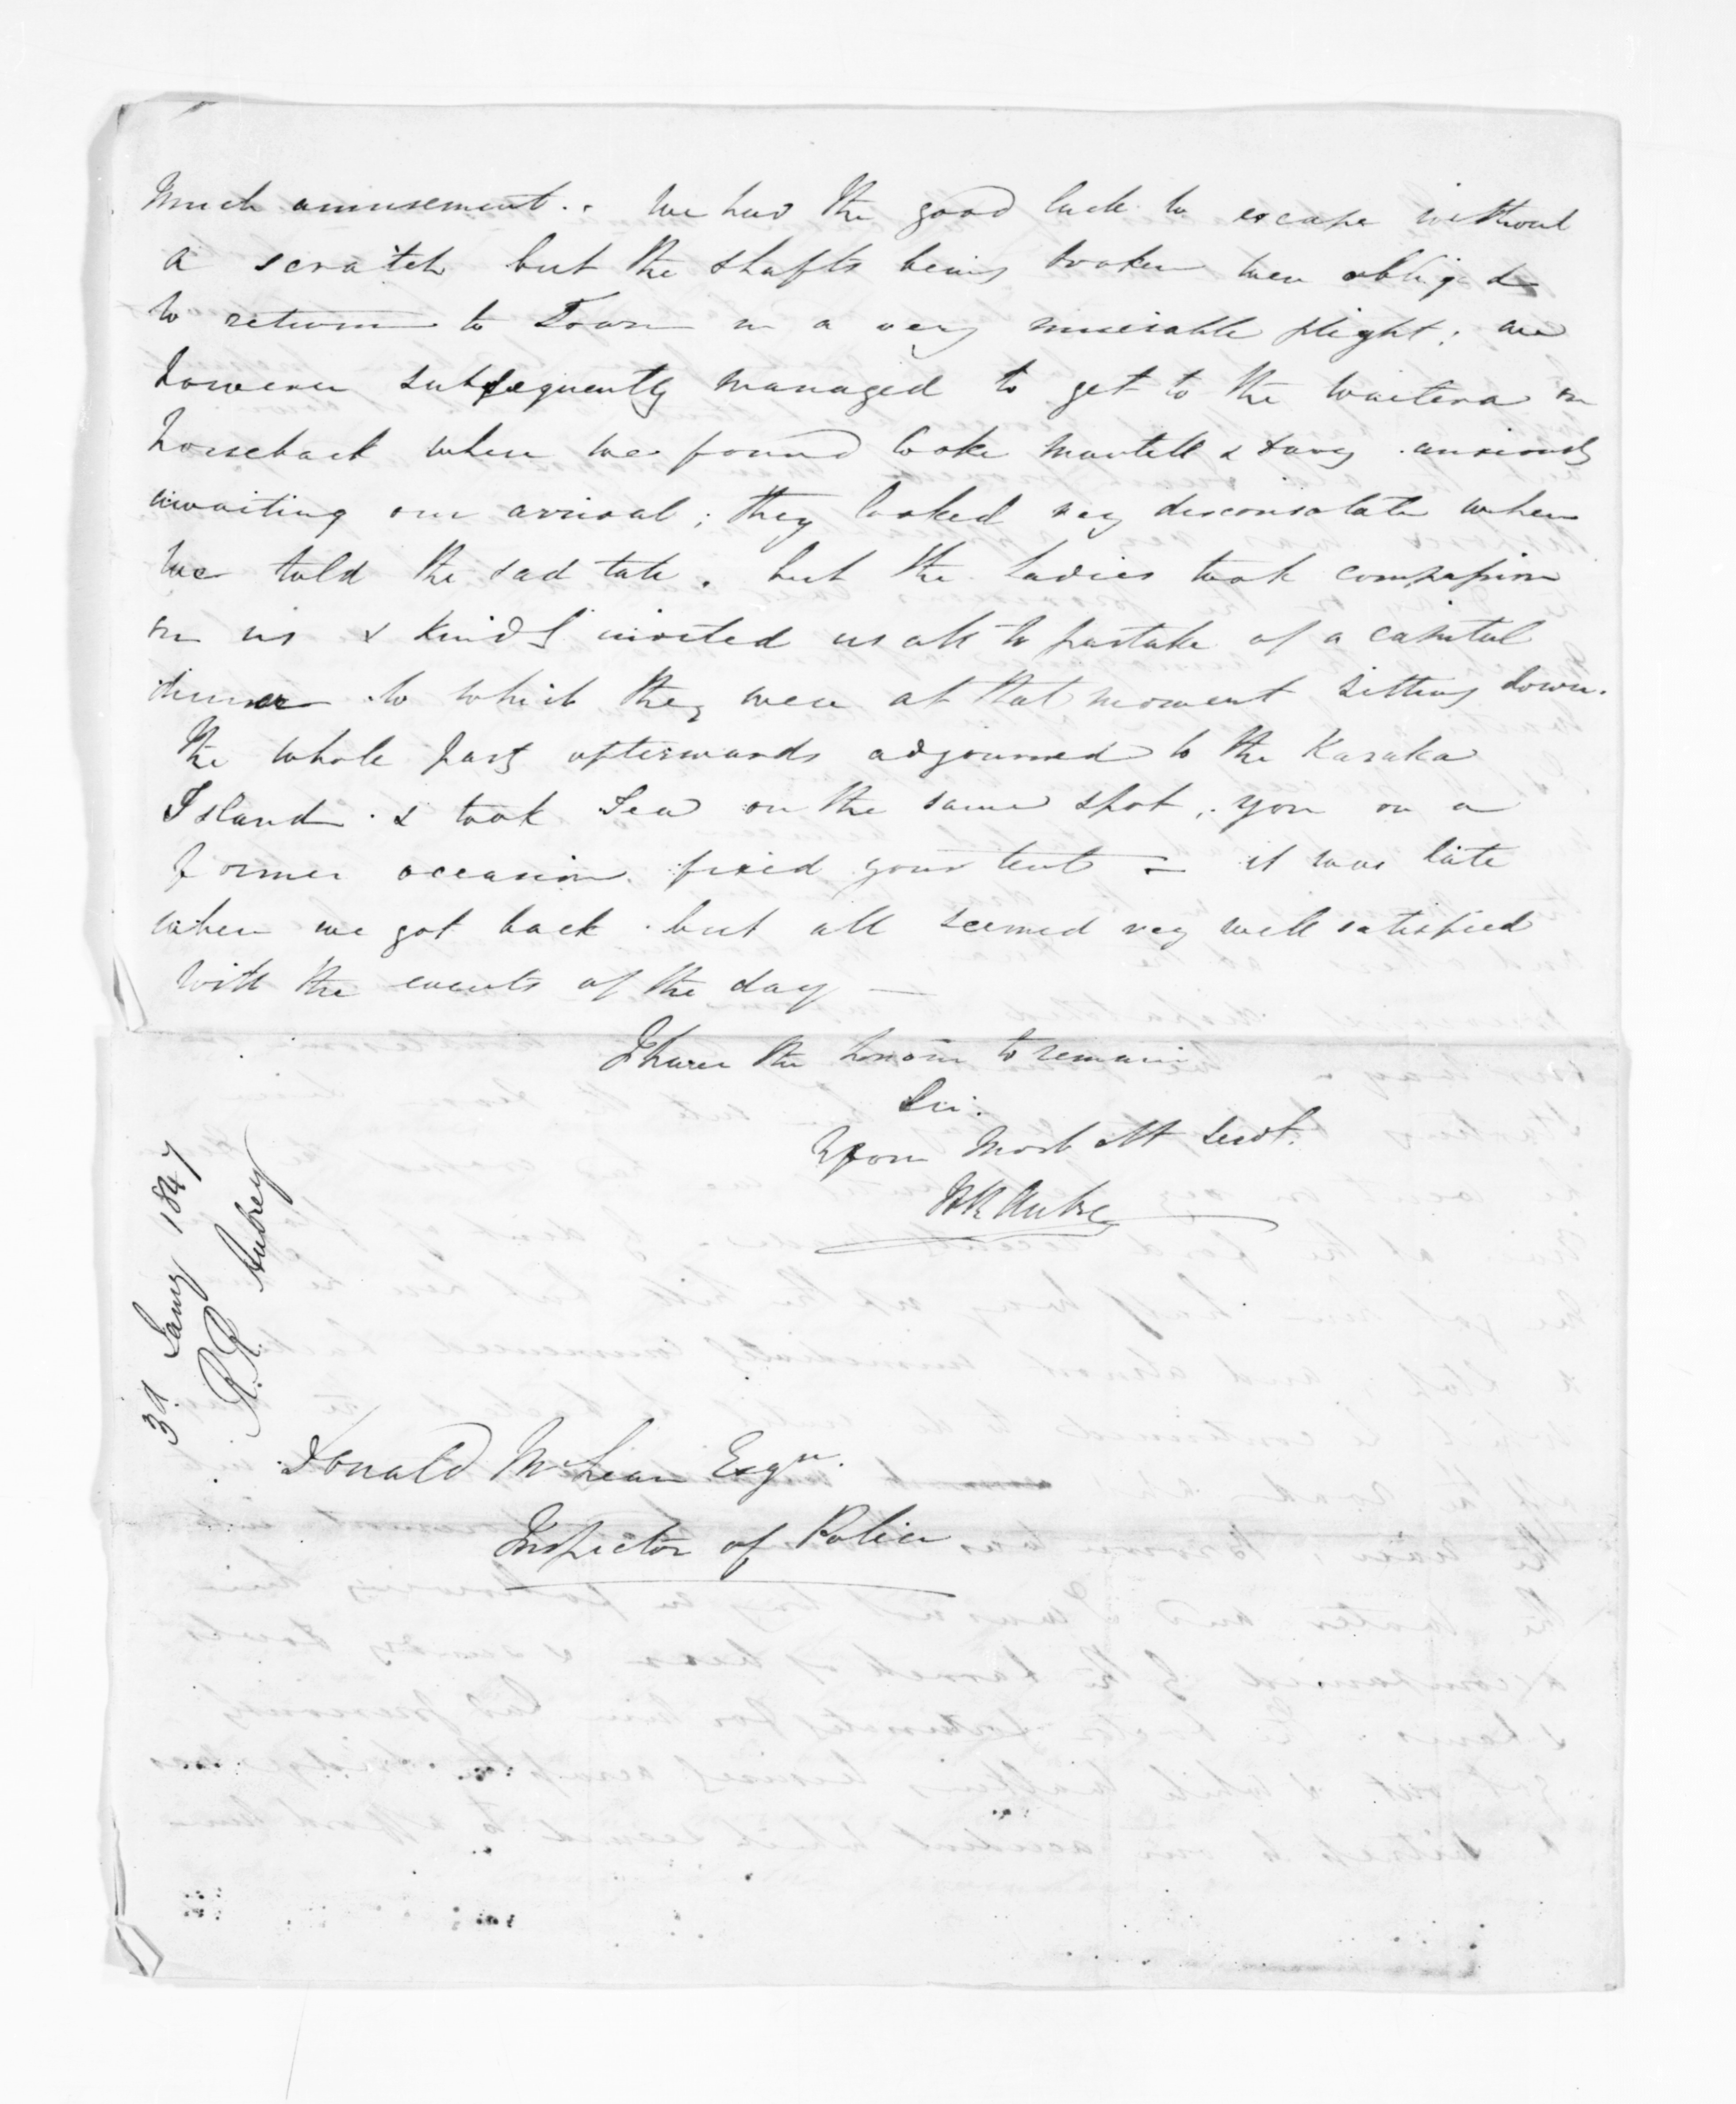 Much amusement. We had the good luck to escape without
a scratch but the shafts being broken were obliged
to return to Town in a very miserable plight; we
however subsequently managed to get to the Waitera on
horseback where we found Cooke Mantell & Davy anxiously
awaiting our arrival; they looked very disconsolate when
we told the sad tale. but the Ladies took compassion
on us & kindly invited us all to partake of a capital
dinner to which they were at that moment sitting down.
The whole party afterwards adjourned to the Karaka
Island & took Tea on the same spot, you on a
former occasion fixed your tent - it was late
when we got back but all seemed very well satisfied
with the events of the day —
I have the honor to remain
Sir.
Your Most Obt Servt.
RR Aubrey
Donald McLean Esqre.
Inspector of Police
3d. Jany 1847
R.R. Aubrey